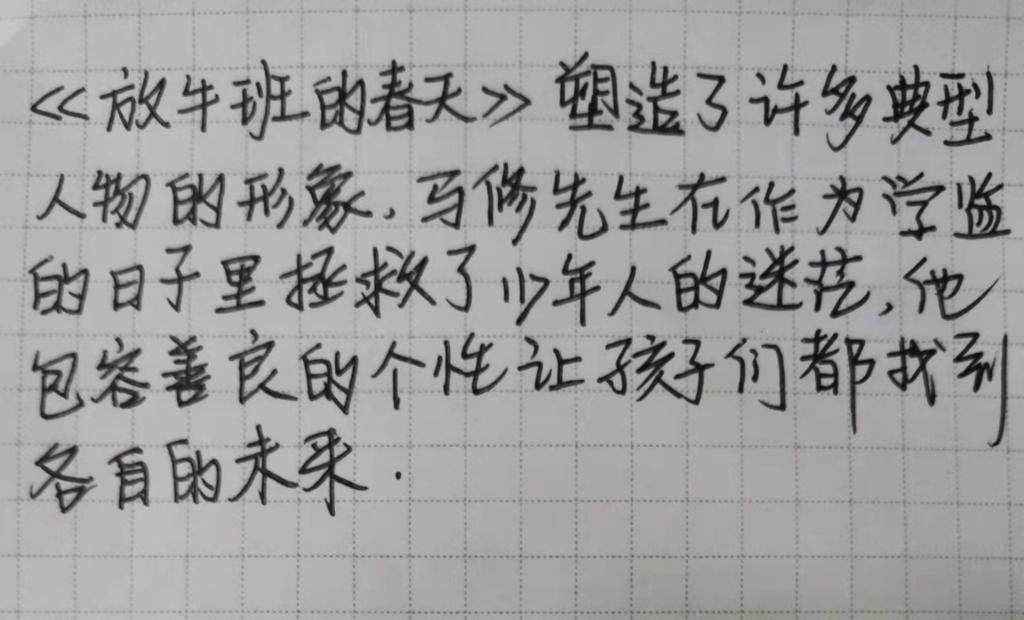 《放牛班的春天》塑造了许多典型
人物的形象,马修先生在作为学监
的日子里拯救了少年人的迷茫,他
包容善良的个性让孩子们都找到
各自的未来.